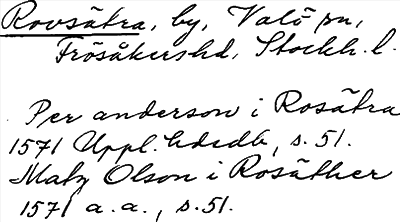 Rovsätra, by, Valö sn,
Frösåkershd, Stockh. l.
Per anderson i Rosätra
1571 Uppl. hdedb, s. 51.
Matz Olson i Rosäther
1571 a. a., s. 51.